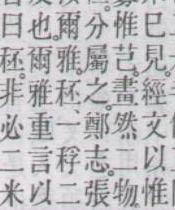 巳見經文以惟
惟芑。畫然二物
分屬之鄭志。張
爾雅。秠一稃二
也。爾雅重言以
曰秠非必二米